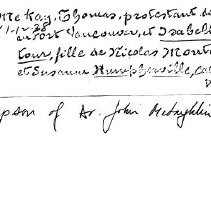 McKay, Thomas, protestant de
Fort Vancouver, et Isabel
tour, fille de Nicolas Mont
et Susanne Humpherville, ca
of Dr. John McLoughlin